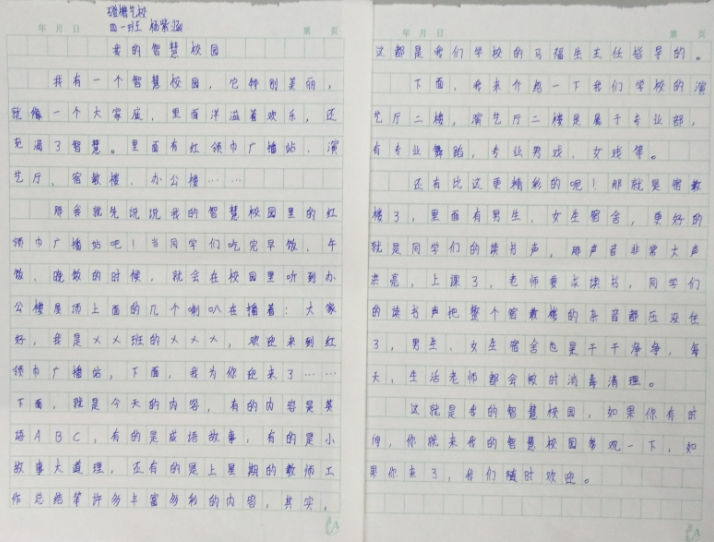 年 月 日
橄榄艺校
四一班 杨紫涵
第 页
我的智慧校园
我有一个智慧校园，它特别美丽，
就像一个大家庭，里面洋溢着欢乐，还
充满了智慧。里面有红领巾广播站、演
艺厅、宿教楼、办公楼……
那我就先说说我的智慧校园里的红
领巾广播站吧！当同学们吃完早饭、午
饭、晚饭的时候，就会在校园里听到办
公楼屋顶上面的几个喇叭在播着：大家
好，我是××班的×××，欢迎来到红
领巾广播站，下面，我为你迎来了……
下面，就是今天的内容，有的内容是英
语ABC，有的是成语故事，有的是小
故事大道理，还有的是上星期的教师工
作总结等许多丰富多彩的内容，其实，
年 月 日
第 页
这都是我们学校的马福生主任指导的。
下面，我来介绍一下我们学校的演
艺厅二楼，演艺厅二楼是属于专业部，
有专业舞蹈，专业男戏、女戏等。
还有比这更精彩的呢！那就是宿教
楼了，里面有男生、女生宿舍，更好的
就是同学们的读书声，那声音非常大声
洪亮，上课了，老师要点读书，同学们
的读书声把整个宿教楼的杂音都压没住
了，男生、女生宿舍也是干干净净，每
天，生活老师都会按时消毒清理。
这就是我的智慧校园，如果你有时
间，你就来我的智慧校园参观一下，如
果你来了，我们随时欢迎。